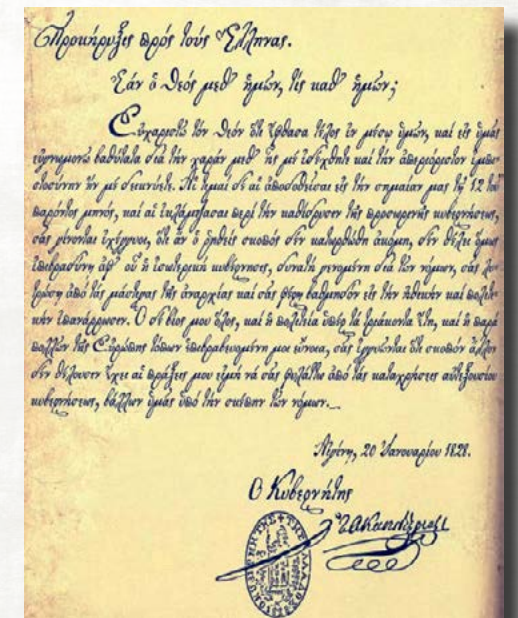 Προκήρυξις πρός τούς Ἕλληνας.
Ἐάν ὁ Θεός μεθ' ἡμῶν, τίς καθ' ἡμῶν;
Εὐχαριστῶ τόν Θεόν ὅτι ἔφθασα τέλος ἐν μέσῳ ὑμῶν, καί εἰς ὑμᾶς
εὐγνωμονῶ βαθύτατα διά τήν χαράν μεθ' ἧς μέ ἐδέχθητε καί τήν ἀπεριόριστον ἐμπι-
στοσύνην ἥν μέ δεικνύετε. Αἱ τιμαί δέ αἱ ἀποδοθεῖσαι εἰς τήν σημαίαν μας τῇ 12 τοῦ
παρόντος μηνός, καί αἱ περί τήν καθίδρυσιν τῆς προσωρινῆς κυβερνήσεως,
σᾶς γίνονται ἐχέγγυοι, ὅτι ἄν ὁ ῥηθείς σκοπός δέν κατωρθώθη ἀκόμη, δέν θέλει ὅμως
ἐπιβραδύνῃ ἀφ' οὗ ἡ ἐσωτερική κυβέρνησις, δυνατή γενομένη διά τῶν νόμων, σᾶς λυ-
τρώσῃ ἀπό τάς μάστιγας τῆς ἀναρχίας καί σᾶς φέρῃ βαθμηδόν εἰς τήν ἠθικήν καί πολιτι-
κήν ἐπανόρθωσιν. Ὁ δέ βίος μου ὅλος, καί ἡ πολιτεία ὑπέρ τά τριάκοντα ἔτη, καί ἡ παρά
πολλῶν τῆς Εὐρώπης τόπων ἐπιβραβευομένη μοι εὔνοια, σᾶς ἐγγυῶνται ὅτι σκοπόν ἄλλον
δέν θέλουσιν ἔχει αἱ πράξεις μου εἰμή νά σᾶς φυλάττω ἀπό τάς καταχρήσεις αὐτεξουσίου
κυβερνήσεως, βάλλων ὑμᾶς ὑπό τήν σκέπην τῶν νόμων._
Αἰγίνῃ, 20 Ἰανουαρίου 1828.
Ὁ Κυβερνήτης
Ἰ. Α. Καποδίστριας